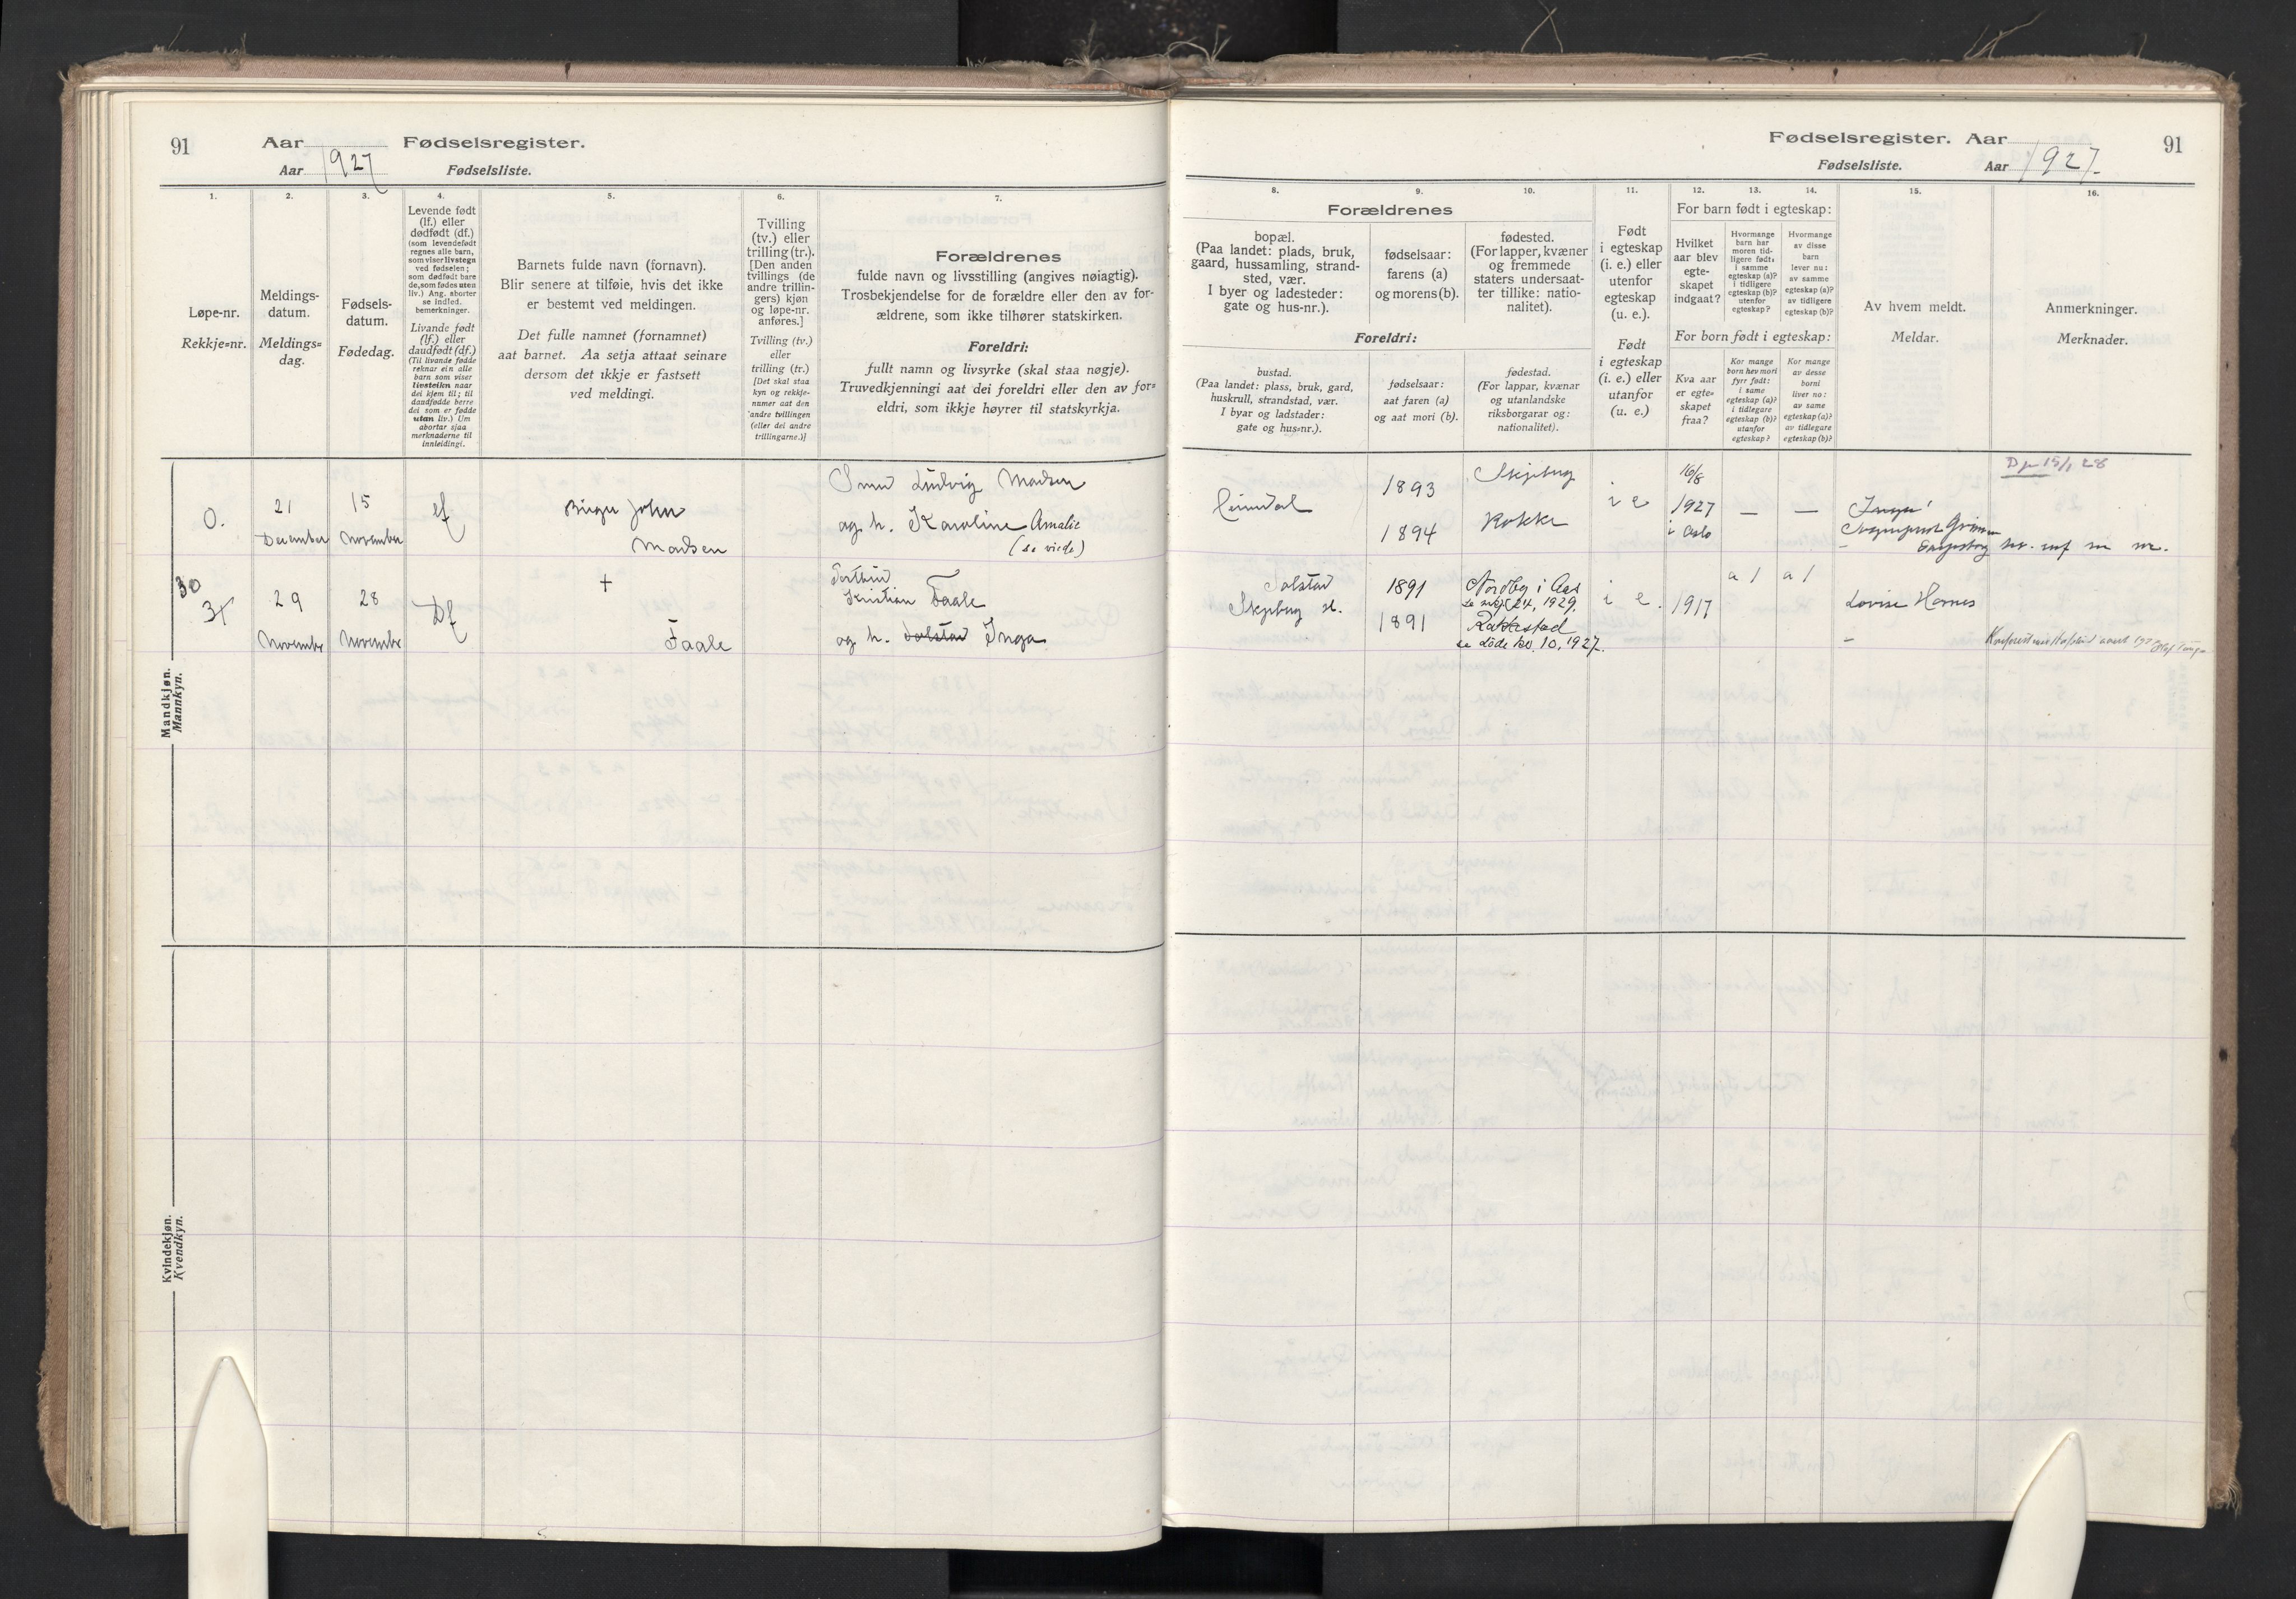 91
Aar
Fødselsregister.
Aar 1927
Fødselsliste.
1.
2.
3.
4.
5.
6.
7.
Løpe-nr.
Rekkje=nr.
Meldings-
datum.
Meldings=
dag.
Fødsels-
datum.
Fødedag.
Levende født
(lf.) eller
dødfødt (df.)
(som levendefødt
regnes alle barn,
som viser livstegn
ved fødselen;
som dødfødt bare
de, som fødes uten
liv.) Ang. aborter
se indled.
bemerkninger.
Livande født
(lf.) eller
daudfødt (df.)
(Til livande fødde
reknar ein alle
barn som viser
livsteikn naar
dei kjem til; til
daudfødde berre
dei som er fødde
utan liv.) Um
abortar sjaa
merknaderne til
innleidingi.
Barnets fulde navn (fornavn).
Blir senere at tilføie, hvis det ikke
er bestemt ved meldingen.
Det fulle namnet (fornamnet)
aat barnet. Aa setja attaat seinare
dersom det ikkje er fastsett
ved meldingi.
Tvilling
(tv.) eller
trilling (tr.).
[Den anden
tvillings (de
andre trillin-
gers) kjøn
og løpe-nr.
anføres.]
Tvilling (tv.)
eller
trilling (tr.)
[Det skal staa
kyn og rekkje-
numer aat den
andre tvillingen
(eller dei andre
trillingarne.)]
Forældrenes
fulde navn og livsstilling (angives nøiagtig).
Trosbekjendelse for de forældre eller den av for-
ældrene, som ikke tilhører statskirken.
Foreldri:
fullt namn og livsyrke (skal staa nøgje).
Truvedkjenningi aat dei foreldri eller den av for=
eldri, som ikkje høyrer til statskyrkja.
Mandkjøn.
Mannkyn.
0.
21
December
15
November
Birger John
Madsen
Ludvig Madsen
og h. Karoline Amalie
(se viede)
30
31
29
November
28
November
Df
+
Faale
Kristian Faale
og h. Solstad Inga
Kvindekjøn.
Kvendkyn.
Fødselsregister. Aar
91
Fødselsliste.
Aar 1927.
8.
9.
10.
11.
12.
13.
14.
15.
16.
Forældrenes
bopæl.
(Paa landet: plads, bruk,
gaard, hussamling, strand-
sted, vær.
I byer og ladesteder:
gate og hus-nr.).
fødselsaar:
farens (a)
og morens (b).
fødested.
(For lapper, kvæner
og fremmede
staters undersaat-
ter tillike: natio-
nalitet).
Foreldri:
bustad.
(Paa landet: plass, bruk, gard,
huskrull, strandstad, vær.
I byar og ladstader:
gate og hus=nr.).
fødselsaar:
aat faren (a)
og aat mori (b).
fødestad.
(For lappar, kvænar
og utanlandske
riksborgarar og:
nationalitet).
Født
i egteskap
(i. e.) eller
utenfor
egteskap
(u. e.).
Født
i egteskap
(i. e.) eller
utanfor
(u. e.)
For barn født i egteskap:
Hvilket
aar blev
egte-
skapet
indgaat?
Hvormange
barn har
moren tid-
ligere født:
i samme
egteskap (a)?
i tidligere
egteskap (b)?
utenfor
egteskap?
Hvormange
av disse
barn
lever nu:
av samme
egteskap (a)?
av tidligere
egteskap (b)?
For born født i egteskap:
Kva aar
er egte=
skapet
fraa?
Kor mange
born hev mori
fyrr født:
i same
egteskap (a)?
i tidlegare
egteskap (b)?
utanfor
egteskap?
Kor mange
av desse
borni
liver no:
av same
egteskap (a)?
av tidlegare
egteskap (b)?
Av hvem meldt.
Meldar.
Anmerkninger.
Merknader.
1893
1894
Skjeberg
Rokke
i e
16/8
1927
i Oslo
—
—
Dp 15/1 28
Solstad
Skjeberg st.
1891
1891
Nordby i Aas
24, 1929.
Rakkestad
se døde no. 10, 1927.
i e.
1917
a 1
a 1
Lovise Hornes